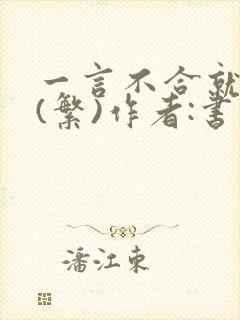 一言不合就
(繁)作者:書
潘江東